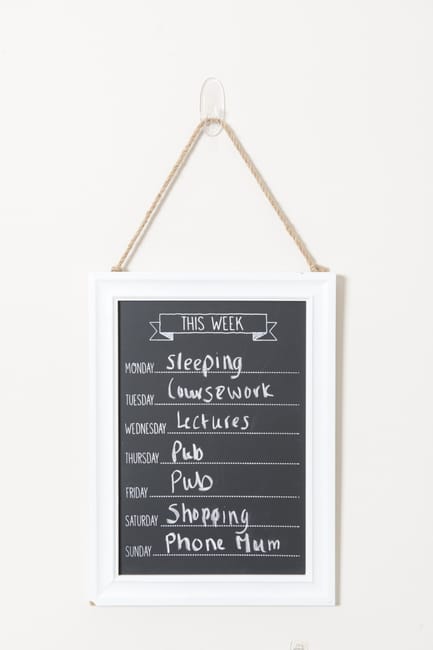 THIS WEEK
MONDAY sleeping
TUESDAY Coursework
WEDNESDAY Lectures
THURSDAY Pub
FRIDAY Pub
SATURDAY Shopping
SUNDAY Phone Mum